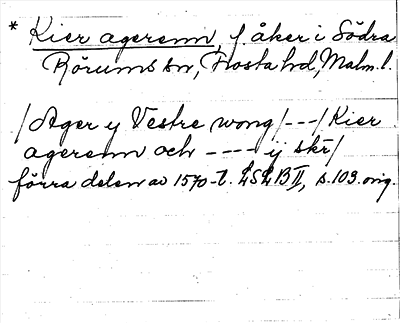 * Kier agerenn, f. åker i Södra
Rörums sn, Frosta hd, Malm. l.
/Ager y Vestre wong/---/Kier
agerenn och ---- ij skr/
förra delen av 1570-t. LSLB II, s. 103. orig.